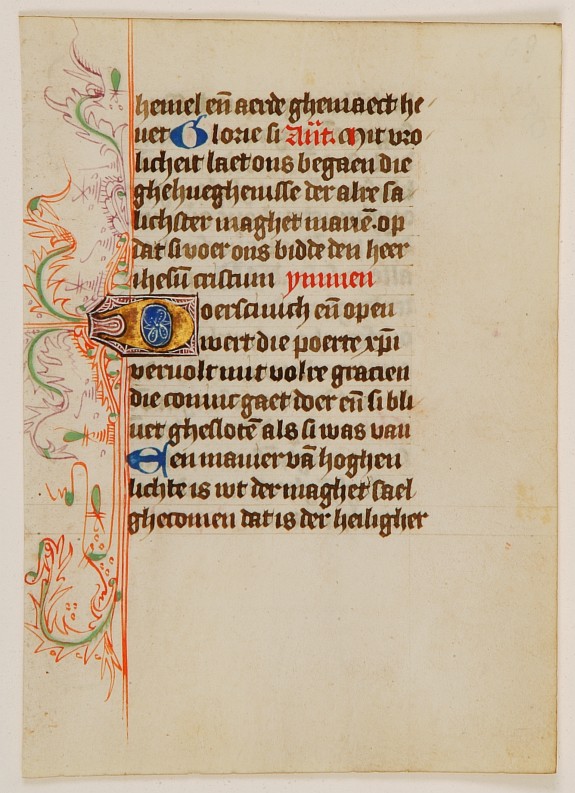 hemel en̄ aerde ghemaect he
uet Glorie si Ant̄. Mit vro
licheit laet ons begaen die
ghehueghenisse der alre sa
lichster maghet marie. op
dat si voer ons bidde den heer
ihesū cristum ymmen
Doersciuich en̄ open
wert die poerte xp̄i
veruolt mit volre gracien
die conuic gaet doer en̄ si bli
uet ghesloten̄ als si was van
Een manier vā hoghen
lichte is wt der maghet sael
ghecomen dat is der heiligher